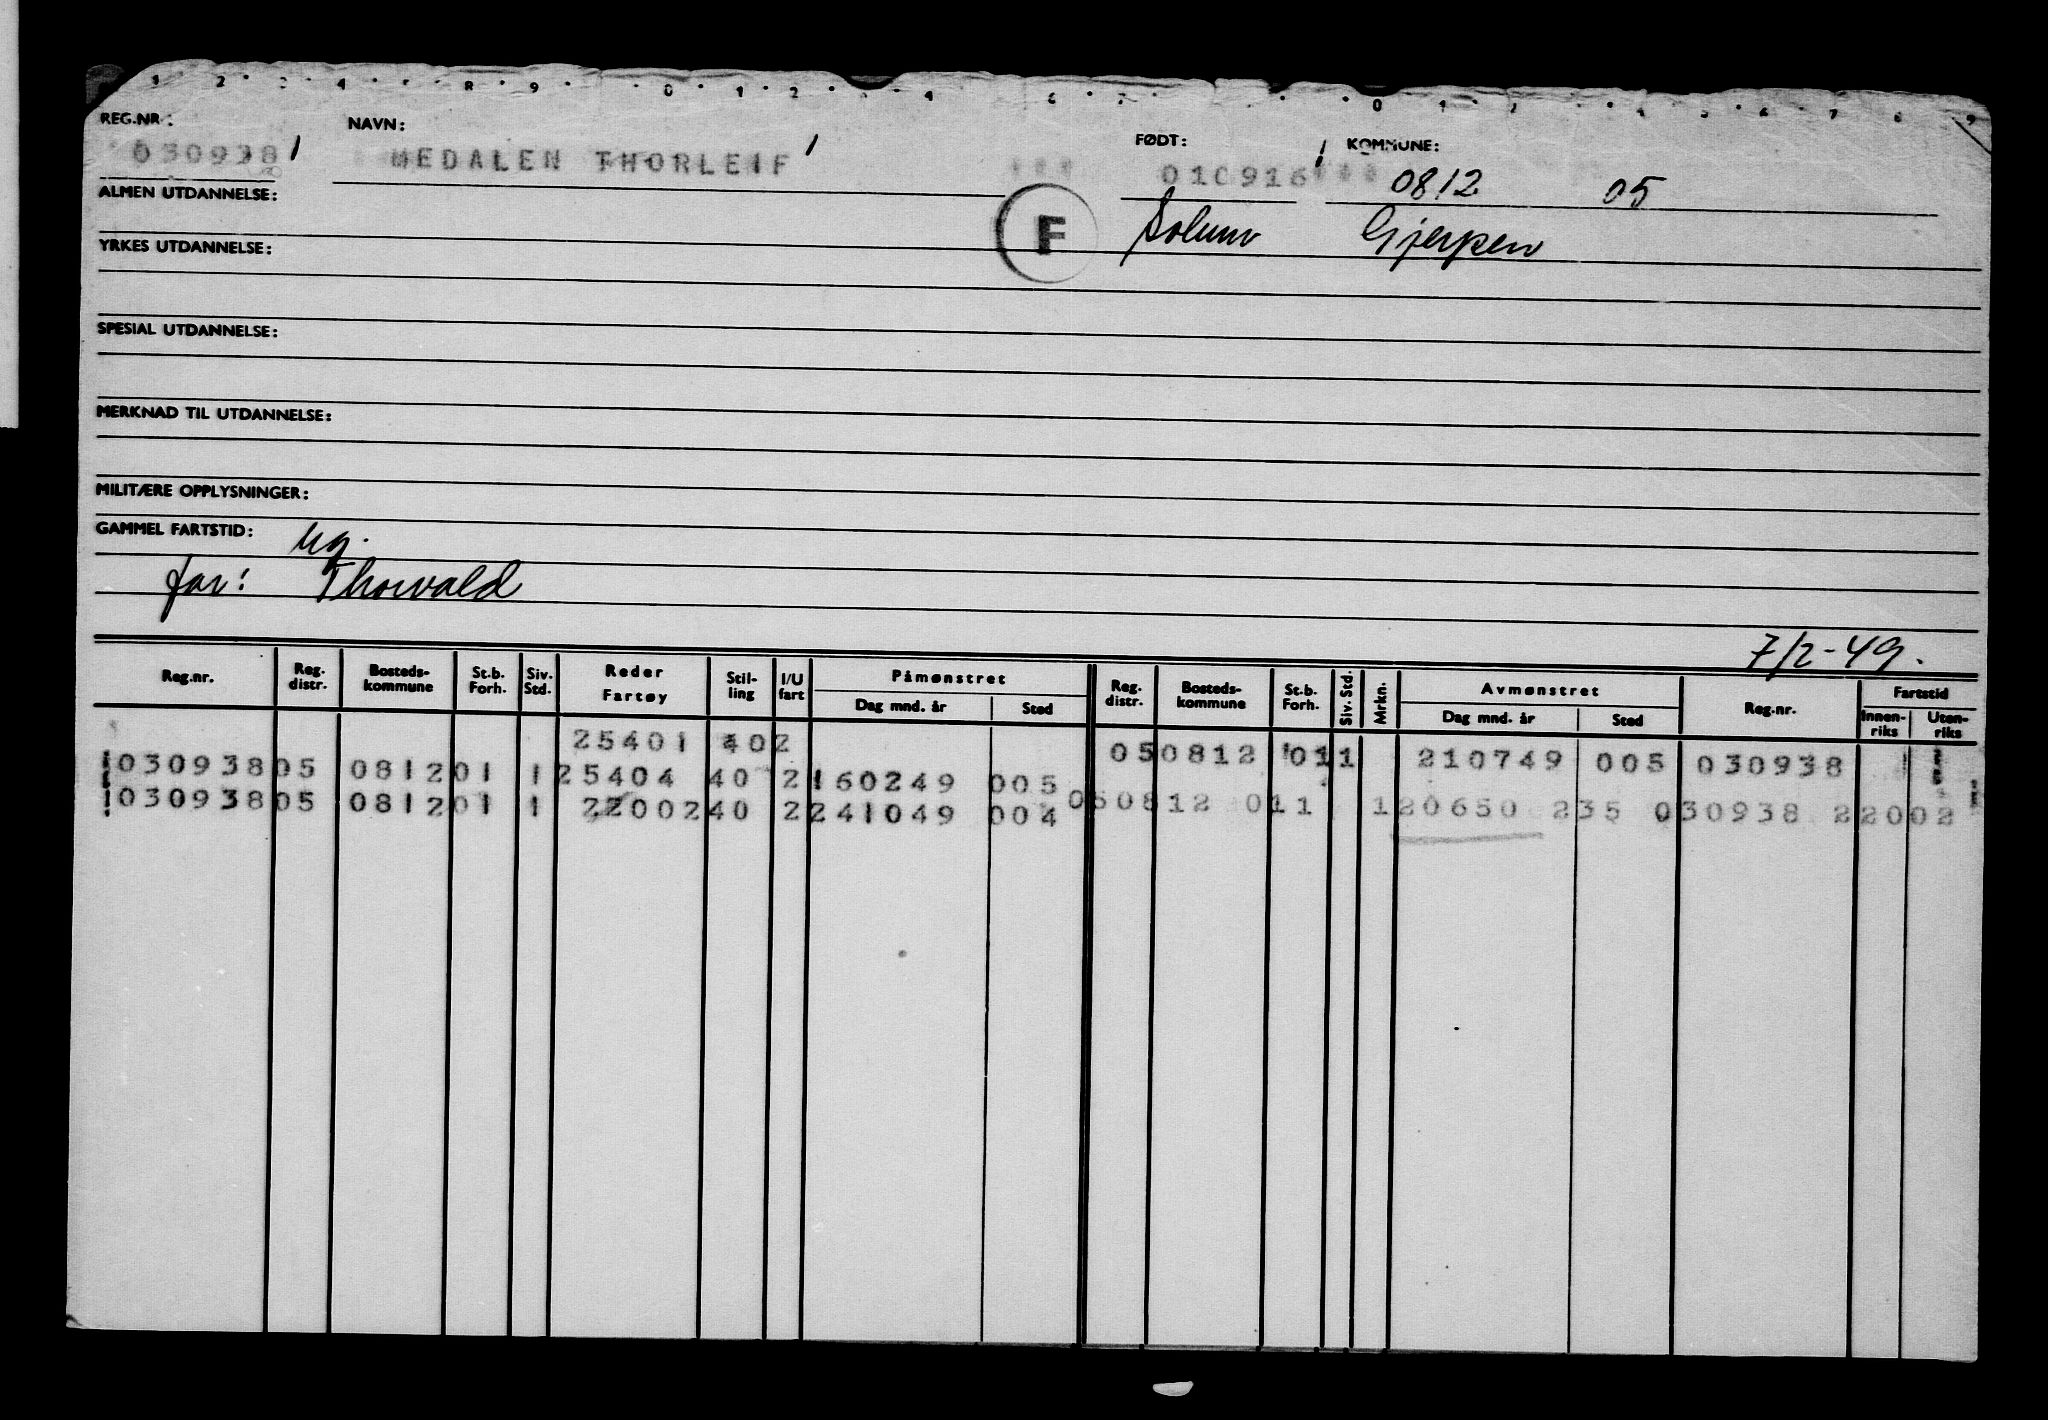 REG.NR: NAVN: FØDT: KOMMUNE:
030938 MEDALEN THORLEIF 010916 0812 05
ALMEN UTDANNELSE: F Solum Gjerpen
YRKES UTDANNELSE:
SPESIAL UTDANNELSE:
MERKNAD TIL UTDANNELSE:
MILITÆRE OPPLYSNINGER:
GAMMEL FARTSTID: Ug.
far: Thorvald
7/2-49.
Reg.nr. Reg. distr. Bosteds-kommune St.b. Forh. Siv. Std. Reder Fartøy Stil-ling I/U fart Påmønstret Dag mnd. år Sted Reg. distr. Bosteds-kommune St.b. Forh. Siv. Std. Mrkn. Avmønstret Dag mnd. år Sted Reg.nr. Fartstid Innen-riks Uten-riks
25401 402 050812 011 210749 005 030938
030938 05 0812 01 1 25404 40 2 160249 005
030938 05 0812 01 1 22002 40 2 241049 004 050812 011 120650 235 030938 22002